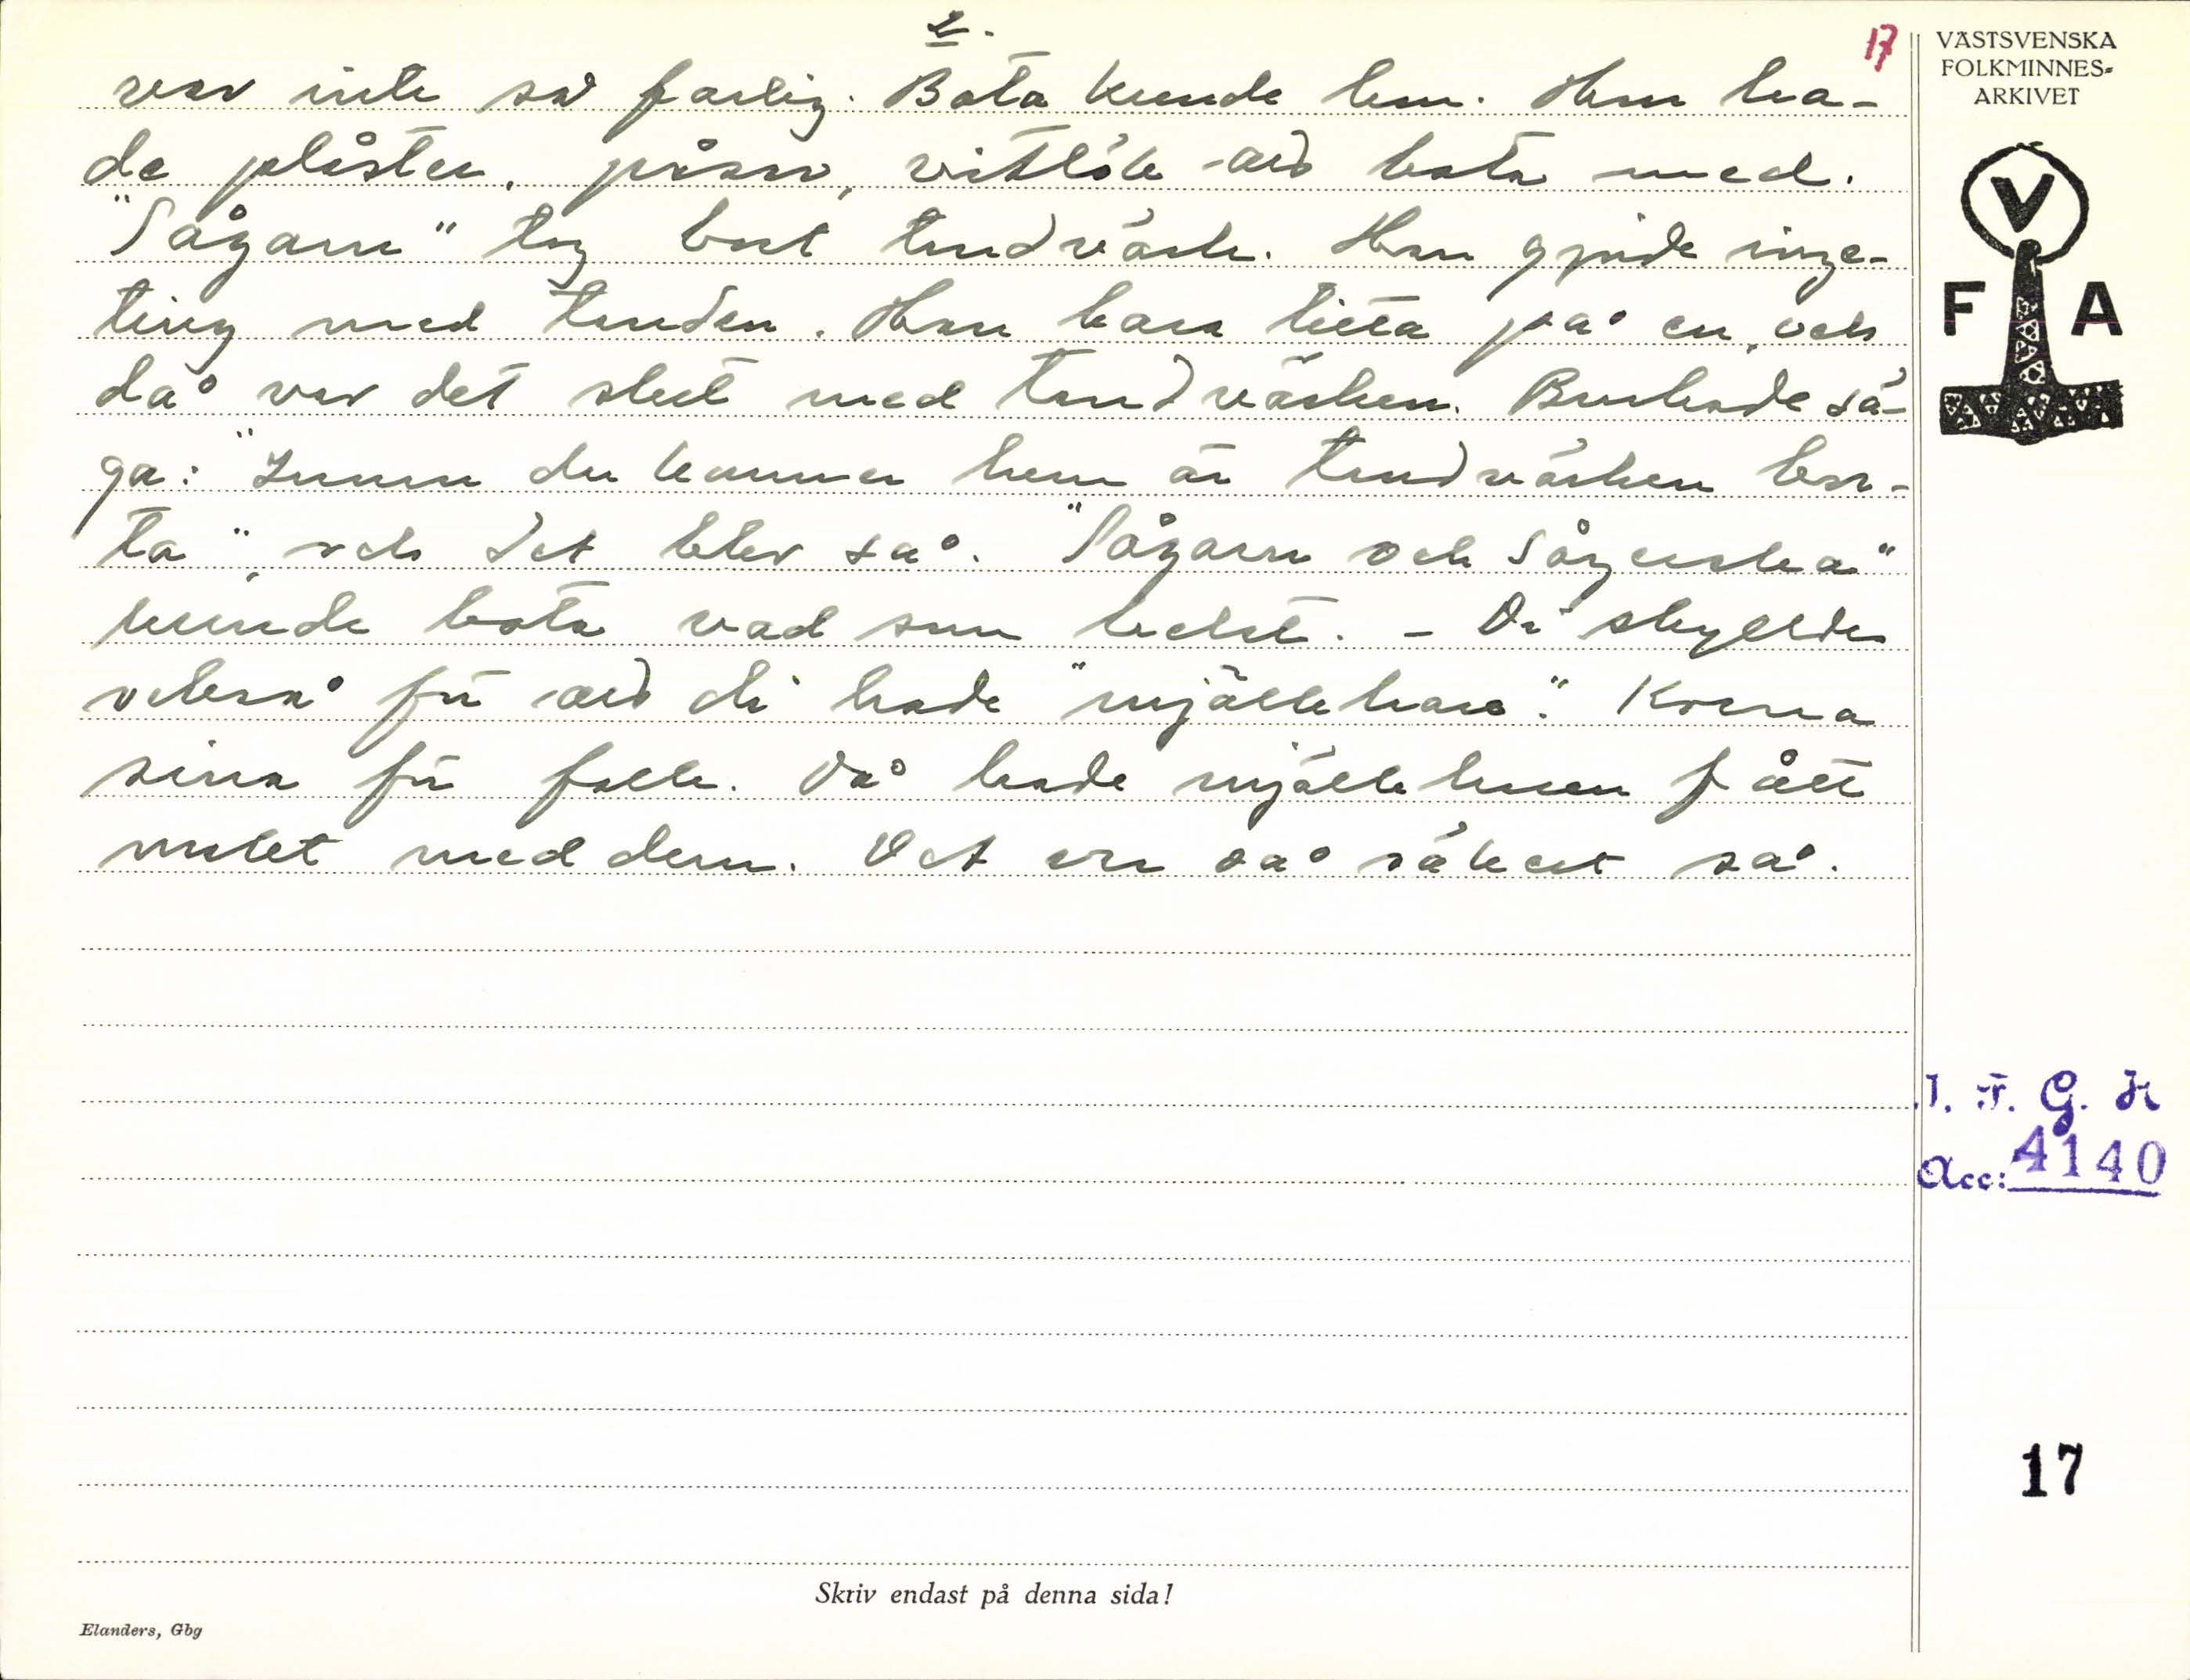 2.
17
var inte så farlig. Bota kunde hon. Hon ha-
de plåster, påsar, vitlök au bota med.
"Sågarn" tog bort tandvärk. Han gjorde inge-
ting med tanden. Han bara titta på en, och
då var det slut med tandvärken. Brukade sä-
ga: "Innan du kommer hem är tandvärken bor-
ta", och det blev så. "Sågarn och Sågerska"
kunde bota vad som helst. - Di skyllde
också för au di hade "mjölkhare". Korna
sina för folk. Då hade mjölkharen fått
mat med dem. Det va då säkert så.
VÄSTSVENSKA
FOLKMINNES-
ARKIVET
V
F A
I. F. G. H
Acc: 4140
17
Skriv endast på denna sida!
Elanders, Gbg